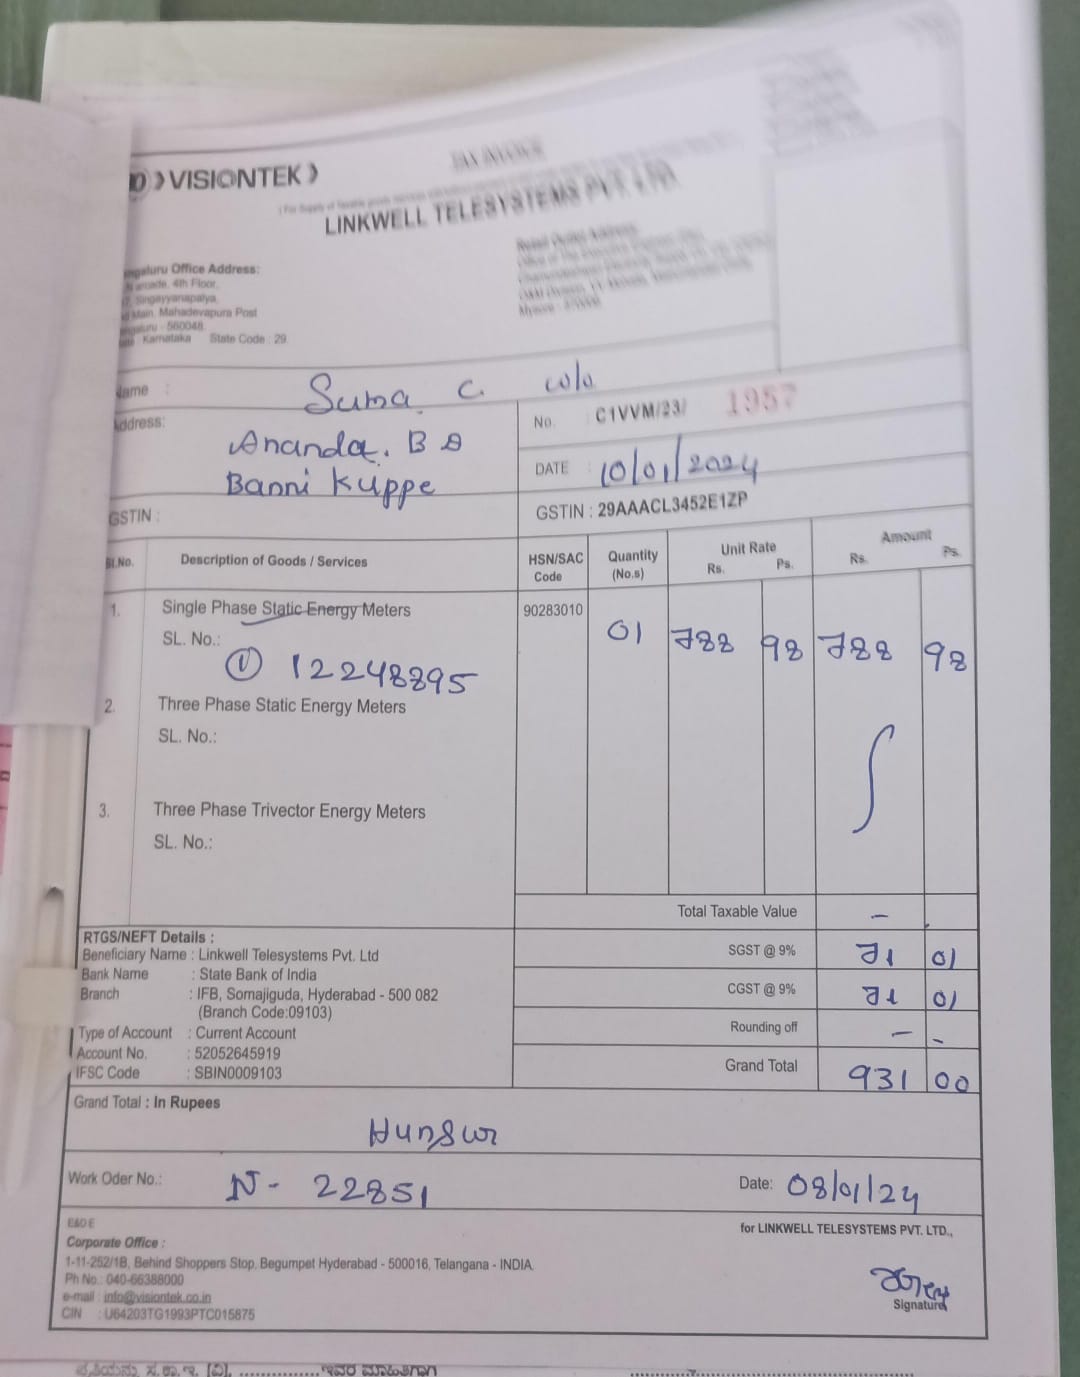 VISIONTEK
TAX INVOICE
LINKWELL TELESYSTEMS PVT. LTD
Office Address:
4th Floor,
Singayyanapalya,
Main, Mahadevapura Post
- 560048.
Karnataka State Code : 29
Name : Suma. C. w/o
Address: Ananda. B
Banni Kuppe
GSTIN :
No. : C1VVM/23/ 1957
DATE : 10/01/2024
GSTIN : 29AAACL3452E1ZP
Sl.No. Description of Goods / Services HSN/SAC Code Quantity (No.s) Unit Rate Rs. Ps. Amount Rs. Ps.
1. Single Phase Static Energy Meters 90283010 01 788 98 788 98
SL. No.:
① 12248895
2. Three Phase Static Energy Meters
SL. No.:
3. Three Phase Trivector Energy Meters
SL. No.:
Total Taxable Value -
RTGS/NEFT Details :
Beneficiary Name : Linkwell Telesystems Pvt. Ltd
Bank Name : State Bank of India
Branch : IFB, Somajiguda, Hyderabad - 500 082
(Branch Code:09103)
Type of Account : Current Account
Account No. : 52052645919
IFSC Code : SBIN0009103
SGST @ 9% 71 01
CGST @ 9% 71 01
Rounding off - -
Grand Total 931 00
Grand Total : In Rupees
Hunsur
Work Oder No.: N - 22851 Date: 08/01/24
E&OE
for LINKWELL TELESYSTEMS PVT. LTD.,
Corporate Office :
1-11-252/1B, Behind Shoppers Stop, Begumpet Hyderabad - 500016, Telangana - INDIA.
Ph No.: 040-66388000
e-mail : info@visiontek.co.in
CIN : U64203TG1993PTC015875
Signature